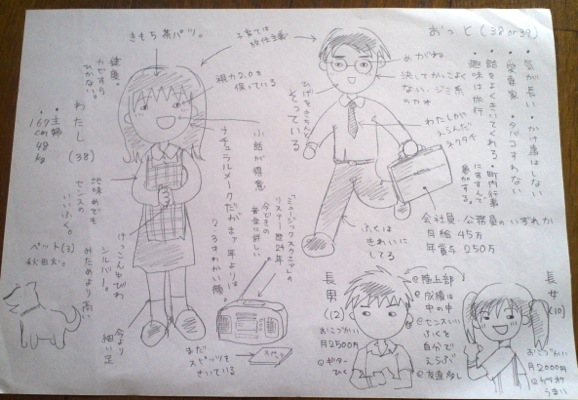 おっと(38 or 39)
・気が長い
・かけ事はしない
・愛妻家
・タバコすわない
・話をよくきいてくれる
・町内行事にすすんで参加する。
・趣味は旅行
めがね
決してかっこよくない、ジミ系のカオ
ひげをきちんとそっている
わたしがえらんだネクタイ
会社員 公務員のいずれか
月給45万
年賞与250万
ふくはきれいにしてる
子育ては放任主義
きもち茶パツ。
健康。
カゼすらひかない。
視力2.0を保っている
わたし(38)
・主婦
・167cm
48kg
ナチュラルメークだがまァ年よりは2、3才わかい顔
小話が得意
地味めでもセンスのいいふく。
けっこんゆびわ
シルバー。
みためより高い
今より細い足
ペット(3)
秋田犬。
「ミュージックスクエア」のリスナー歴24年
今どきの音楽に詳しい
まだスピッツをきいている
スピッツ
長男(12)
おこづかい
月2500円
@ギターひく
@陸上部
@成績は中の中
@センスいいふくを自分でえらぶ
@友達多し
長女(10)
おこづかい
月2000円